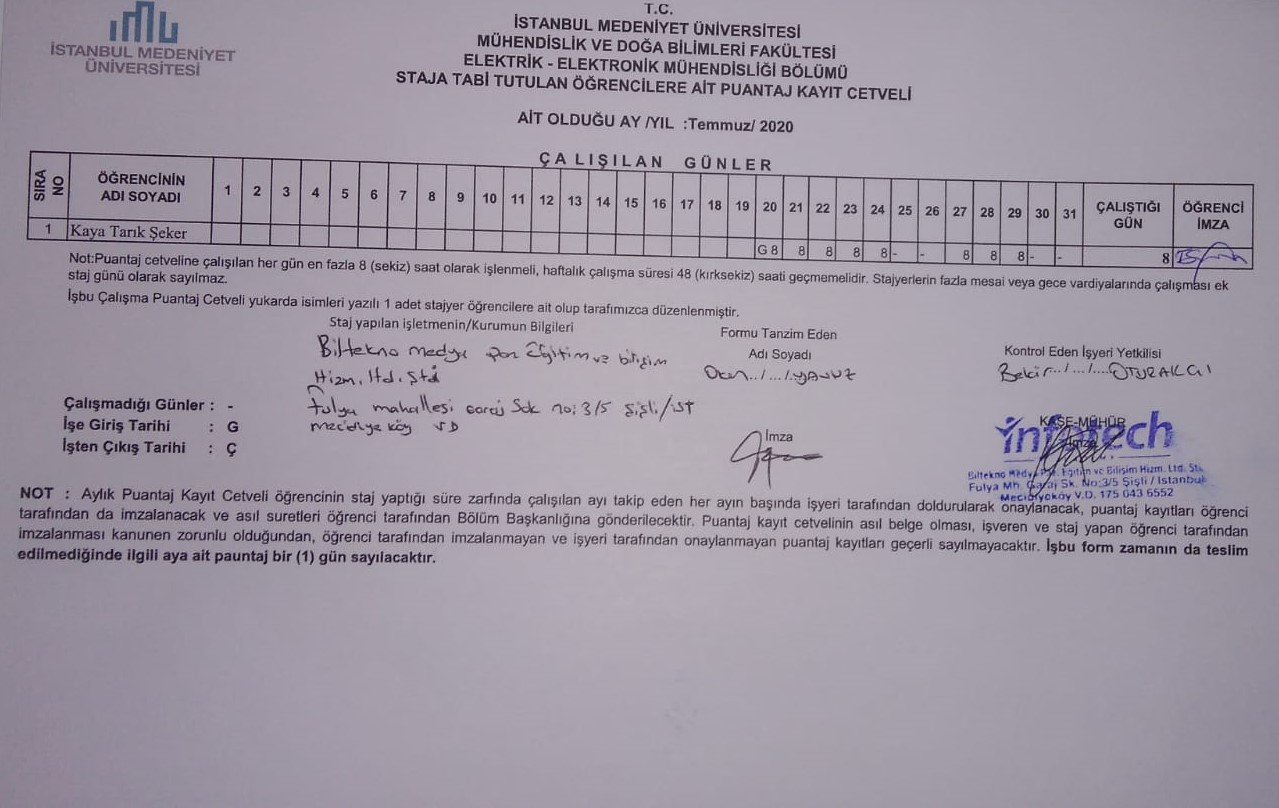 İSTANBUL MEDENİYET
ÜNİVERSİTESİ
T.C.
İSTANBUL MEDENİYET ÜNİVERSİTESİ
MÜHENDİSLİK VE DOĞA BİLİMLERİ FAKÜLTESİ
ELEKTRİK - ELEKTRONİK MÜHENDİSLİĞİ BÖLÜMÜ
STAJA TABİ TUTULAN ÖĞRENCİLERE AİT PUANTAJ KAYIT CETVELİ
AİT OLDUĞU AY /YIL :Temmuz/ 2020
ÇALIŞILAN GÜNLER
SIRA NO ÖĞRENCİNİN ADI SOYADI 1 2 3 4 5 6 7 8 9 10 11 12 13 14 15 16 17 18 19 20 21 22 23 24 25 26 27 28 29 30 31 ÇALIŞTIĞI GÜN ÖĞRENCİ İMZA
1 Kaya Tarık Şeker G 8 8 8 8 8 - - 8 8 8 - - 8
Not:Puantaj cetveline çalışılan her gün en fazla 8 (sekiz) saat olarak işlenmeli, haftalık çalışma süresi 48 (kırksekiz) saati geçmemelidir. Stajyerlerin fazla mesai veya gece vardiyalarında çalışması ek
staj günü olarak sayılmaz.
İşbu Çalışma Puantaj Cetveli yukarda isimleri yazılı 1 adet stajyer öğrencilere ait olup tarafımızca düzenlenmiştir.
Staj yapılan işletmenin/Kurumun Bilgileri
Biltekno medya paz Eğitim ve bilişim
Hizm. ltd. Şti
fulya mahallesi no: 3/5 şişli/ist
mecidiye köy VD
Formu Tanzim Eden
Adı Soyadı
../.../... YAVUZ
İmza
Kontrol Eden İşyeri Yetkilisi
Bekir.../.../....OTURAKÇI
KAŞE-MÜHÜR
infotech
Biltekno Medya Paz. Eğitim ve Bilişim Hizm. Ltd. Şti.
Fulya Mh. Sk. No:3/5 Şişli / İstanbul
Mecidiyeköy V.D. 175 043 6552
Çalışmadığı Günler : -
İşe Giriş Tarihi : G
İşten Çıkış Tarihi : Ç
NOT : Aylık Puantaj Kayıt Cetveli öğrencinin staj yaptığı süre zarfında çalışılan ayı takip eden her ayın başında işyeri tarafından doldurularak onaylanacak, puantaj kayıtları öğrenci
tarafından da imzalanacak ve asıl suretleri öğrenci tarafından Bölüm Başkanlığına gönderilecektir. Puantaj kayıt cetvelinin asıl belge olması, işveren ve staj yapan öğrenci tarafından
imzalanması kanunen zorunlu olduğundan, öğrenci tarafından imzalanmayan ve işyeri tarafından onaylanmayan puantaj kayıtları geçerli sayılmayacaktır. İşbu form zamanın da teslim
edilmediğinde ilgili aya ait pauntaj bir (1) gün sayılacaktır.